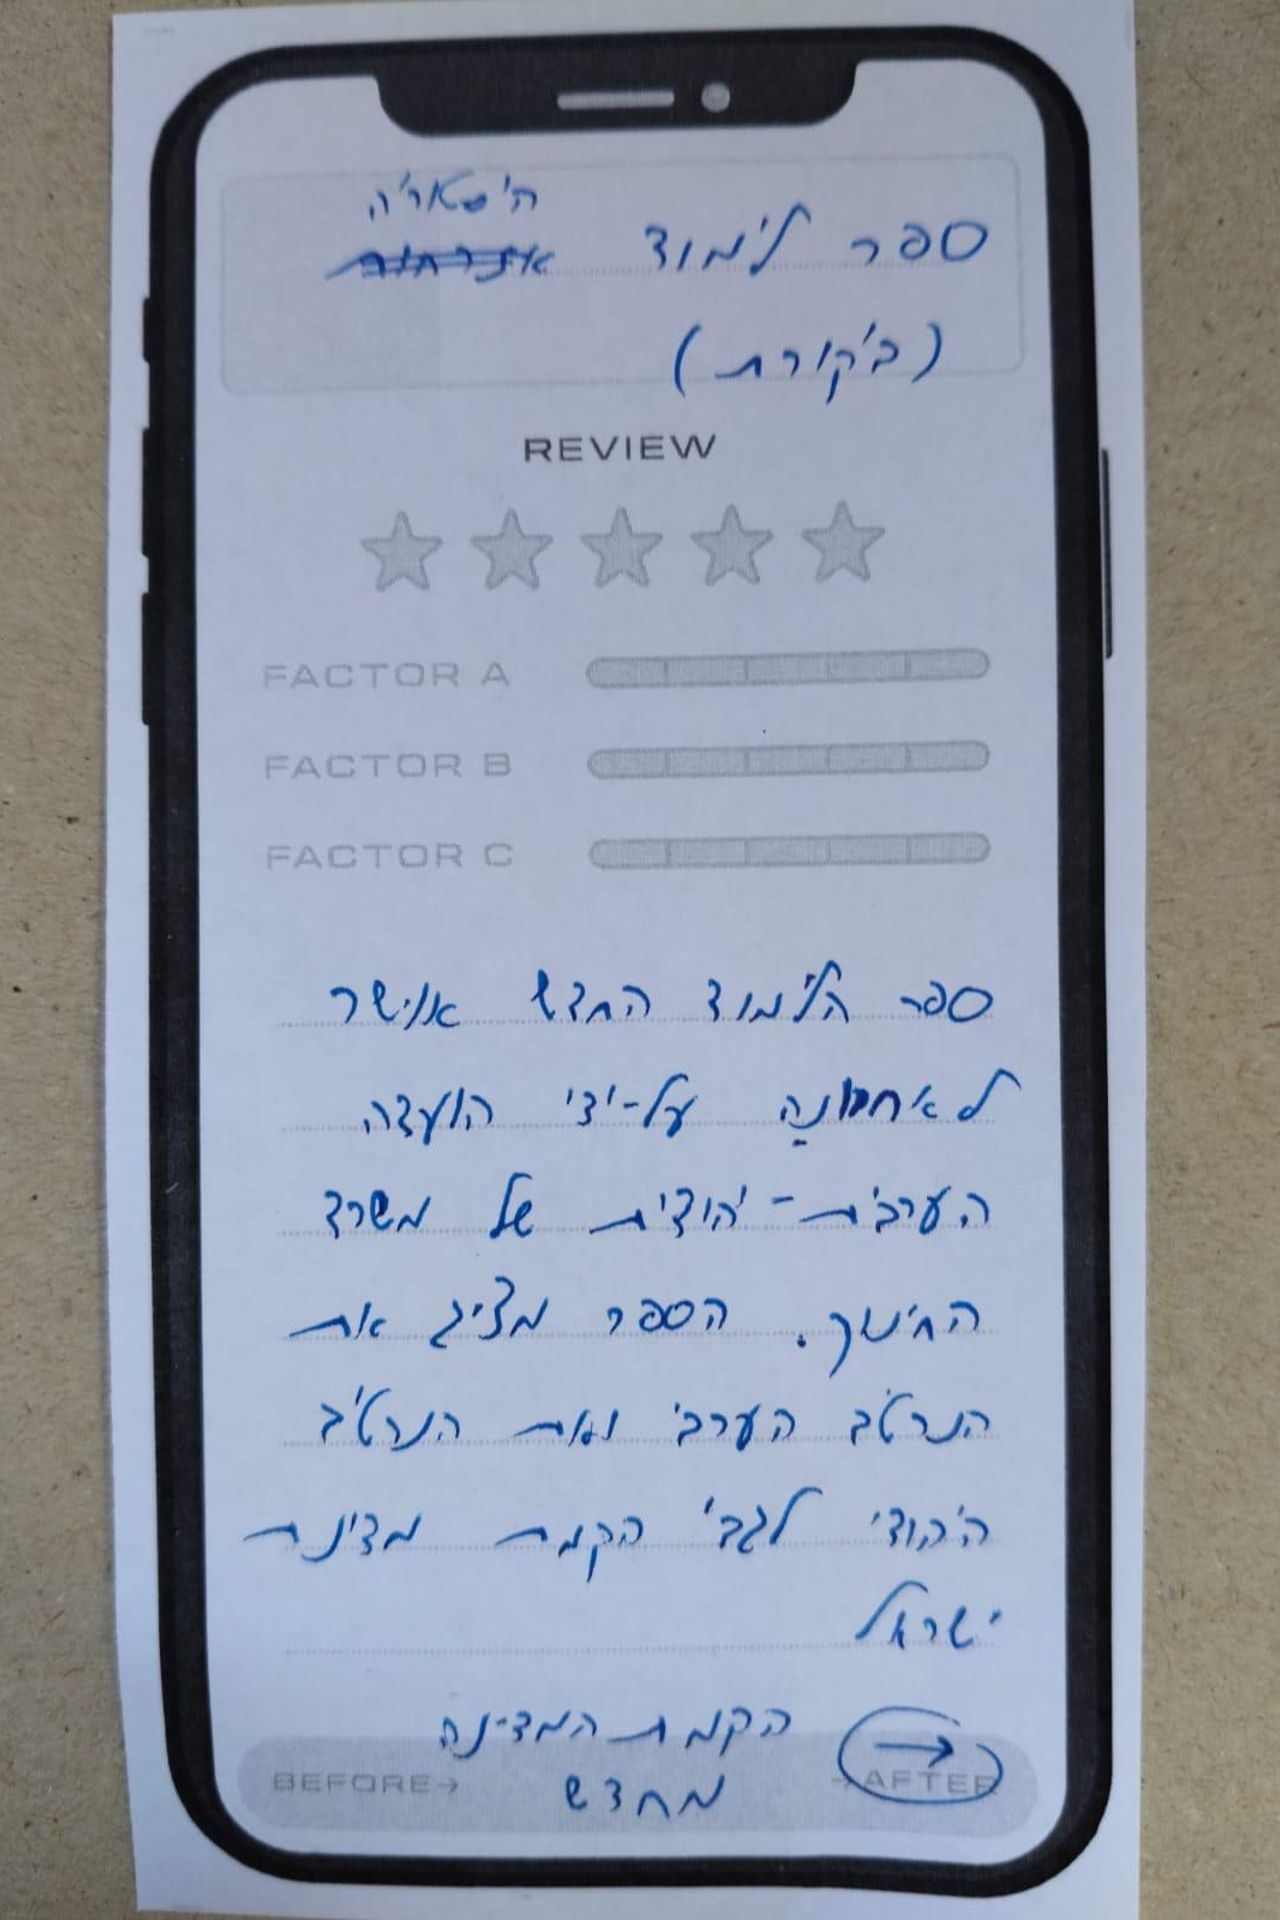 היסטוריה
ספר לימוד
(ביקורת)
REVIEW
FACTOR A
FACTOR B
FACTOR C
ספר הלימוד החדש אושר
לאחרונה על-ידי הועדה
הערבית-יהודית של משרד
החינוך. הספר מציג את
הנרטיב הערבי ואת הנרטיב
היהודי לגבי הקמת מדינת
ישראל
הקמת המדינה
BEFORE→ מחדש →AFTER